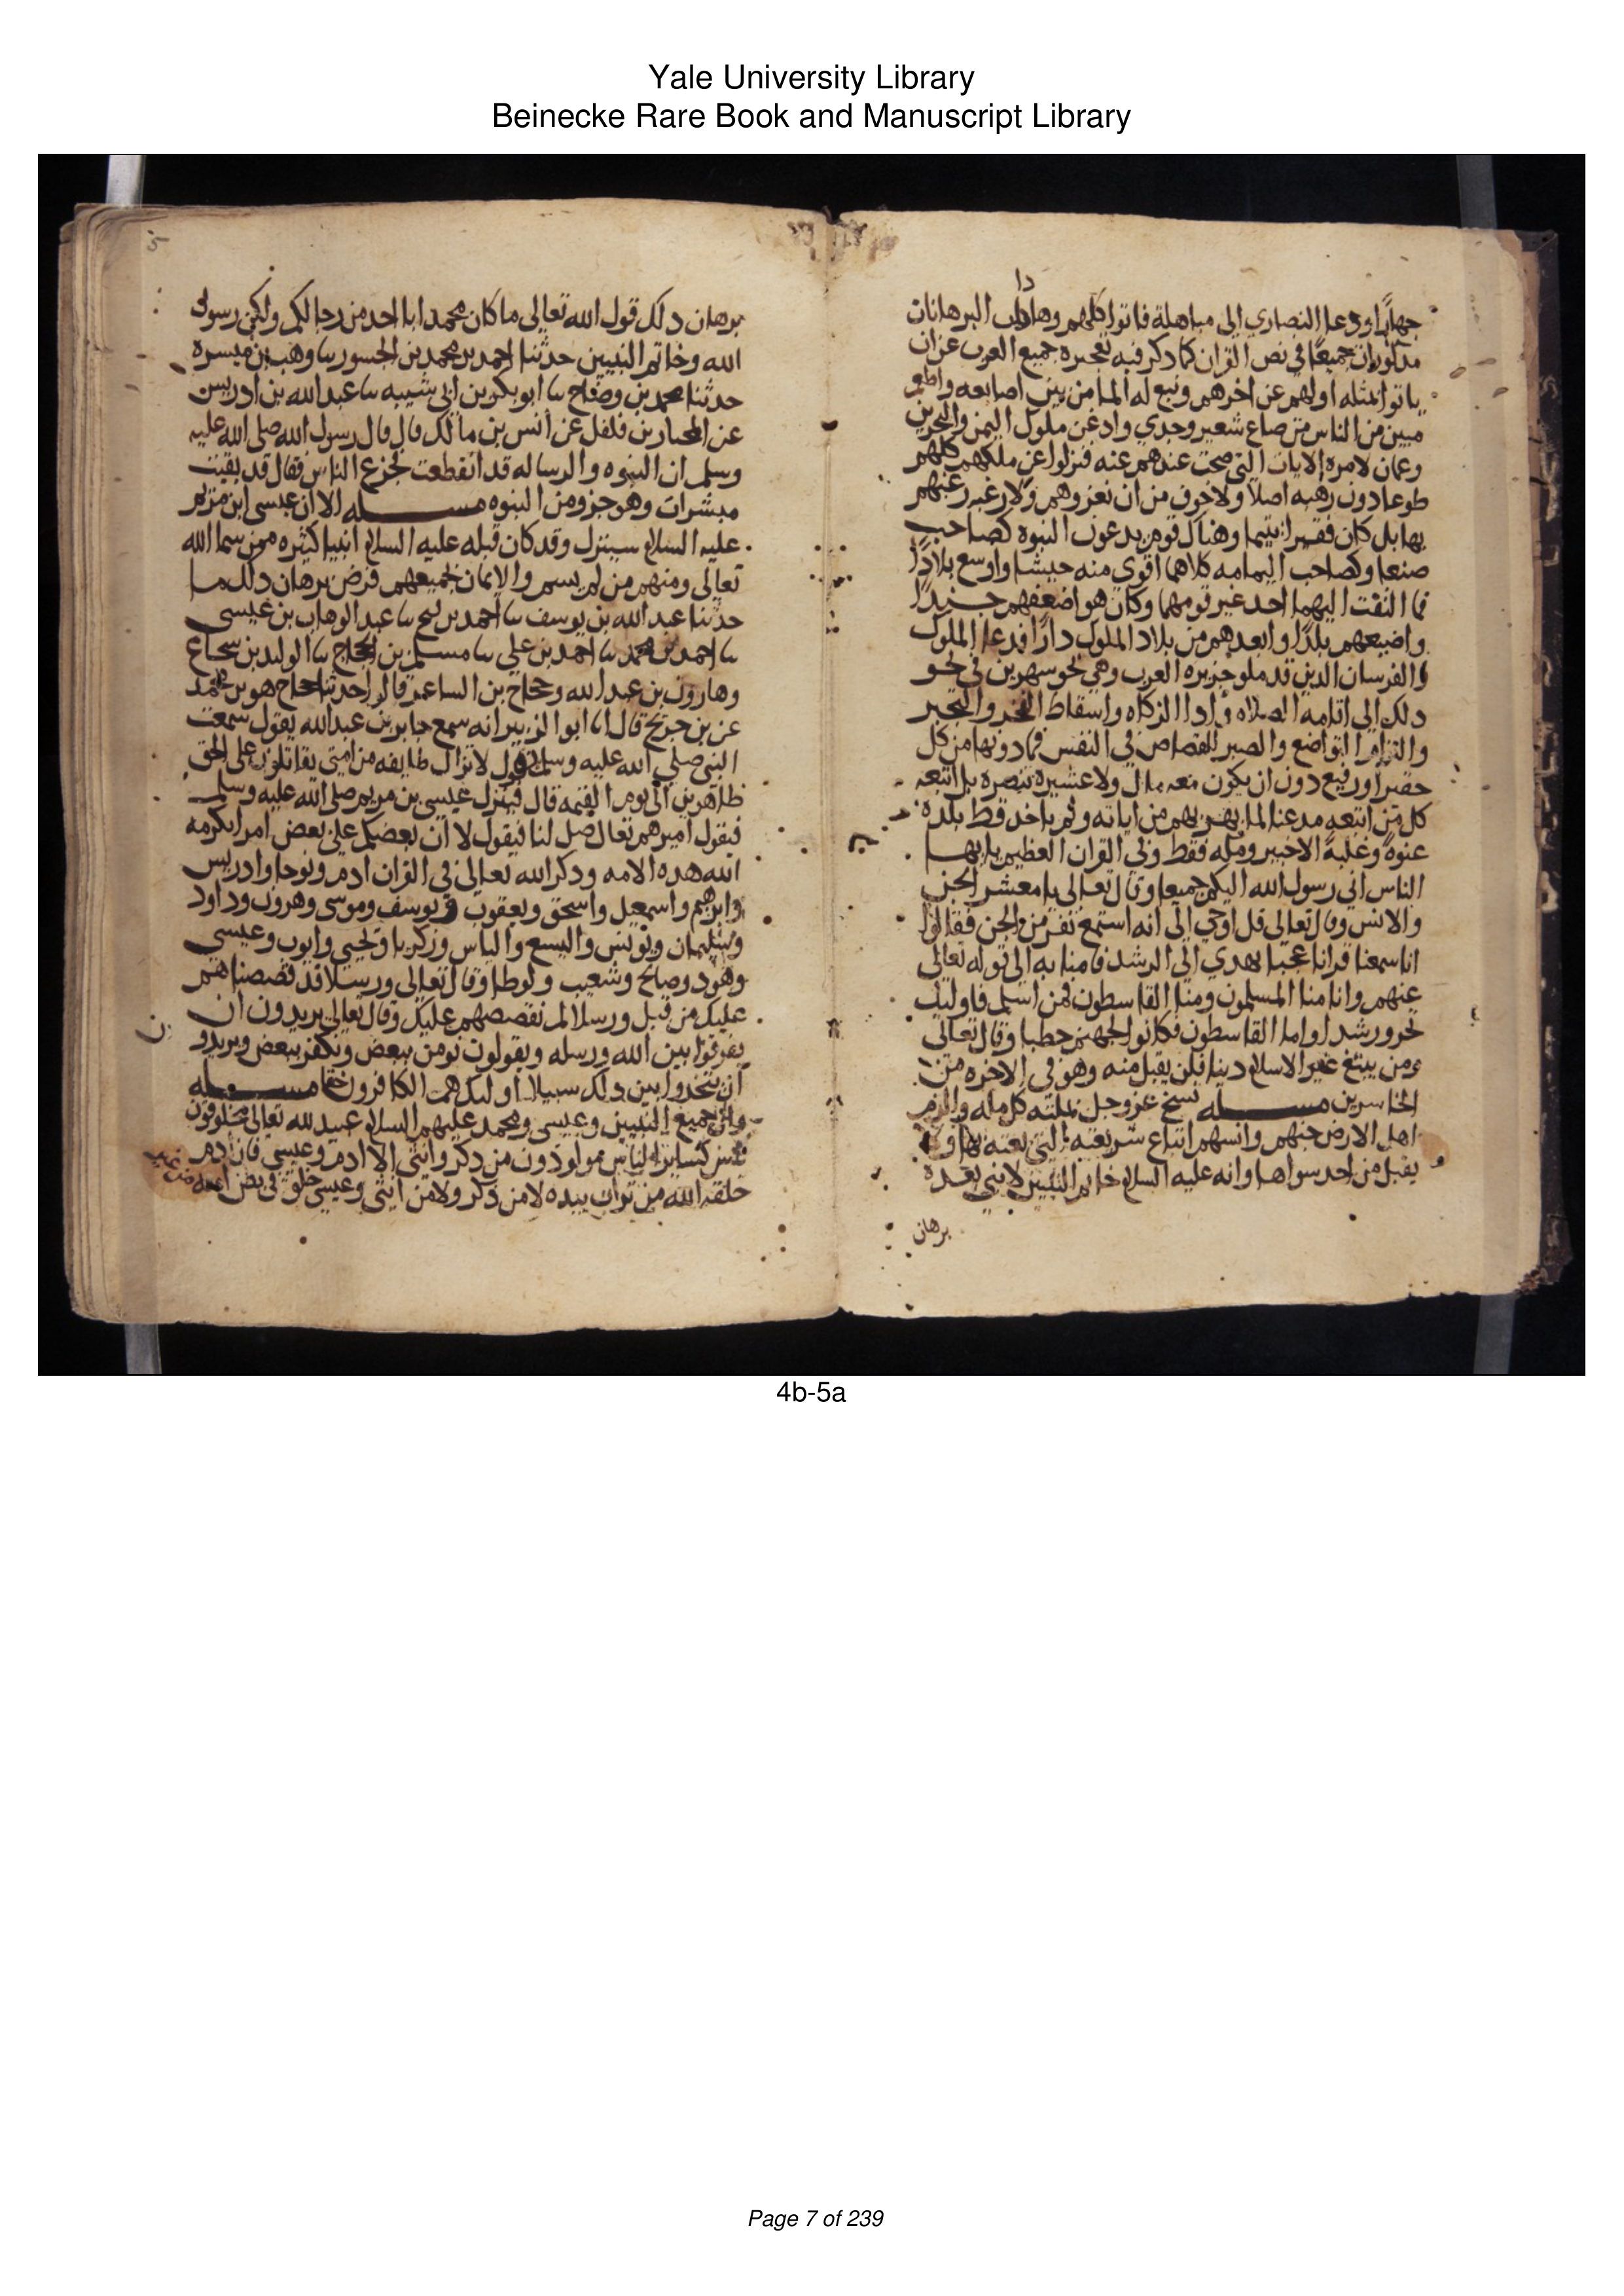 Yale University Library
Beinecke Rare Book and Manuscript Library
جهارا ودعا النصاري الي مباهلة فاتوا كلهم وهذان البرهانان
مذكوران جميعا في نص القران كما دكر فيه تعجيزه جميع العرب عن ان
ياتوا بمثله اولهم عن اخرهم ونبع له الما من بين اصابعه واطعم
ميين من الناس من صاع شعير وجدي واذعن ملوك اليمن والبحرين
وعمان لامره للايات التي صحت عندهم عنه فنزلوا عن ملكهم كلهم
طوعا دون رهبه اصلا ولا خوف من ان نغزوهم ولا رغبه رغبهم
بها بل كان فقيرا يتيما وهناك قوم يدعون النبوه كصاحب
صنعا وكصاحب اليمامه كلاهما اقوى منه جيشا واوسع بلادا
فما التفت اليهما احد غير قومهما وكان هو اضعفهم جندا
واضيعهم بلدا وابعدهم من بلاد الملوك دارا فدعا الملوك
والفرسان الذين قد ملو جزيره العرب وهي نحو سهرين في نحو
دلك الي اقامه الصلاه وادا الزكاه واسقاط الفخر والتجبر
والتزام التواضع والصبر للقصاص في النفس فما دونها من كل
حقير او رفيع دون ان يكون معه مال ولا عشيرة تنصره بل اتبعه
كل من اتبعه مدعنا لما بهرهم من اياته ولم ياخد قط بلده
عنوة وغلبة الا خيبر ومكه فقط وفي القران العظيم يا ايها
الناس اني رسول الله اليكم جميعا وقال تعالى يا معشر الجن
والانس وقال تعالى قل اوحي الي انه استمع نفر من الجن فقالوا
انا سمعنا قرانا عجبا يهدي الي الرشد فامنا به الي قوله تعالى
عنهم وانا منا المسلمون ومنا القاسطون فمن اسلم فاوليك
تحرو رشدا واما القاسطون فكانوا لجهنم حطبا وقال تعالى
ومن يبتغ غير الاسلام دينا فلن يقبل منه وهو في الاخره من
الخاسرين مســـله نسخ عز وجل بملته كل مله والزم
اهل الارض جنهم وانسهم اتباع شريعته التي بعثه بها ولا
يقبل من احد سواها وانه عليه السلام خاتم النبيين لا نبي بعده
برهان
5
برهان دلك قول الله تعالى ما كان محمد ابا احد من رجالكم ولكن رسول
الله وخاتم النبيين حدثنا احمد بن محمد بن الجسور سا وهب بن ميسره
حدثنا محمد بن وضاح سا ابو بكر بن ابي شيبه سا عبد الله بن ادريس
عن المختار بن فلفل عن انس بن مالك قال قال رسول الله صلى الله عليه
وسلم ان النبوه والرساله قد انقطعت فجزع الناس فقال قد بقيت
مبشرات وهو جزو من النبوه مســـله الا ان عيسى ابن مريم
عليه السلام سينزل وقد كان قبله عليه السلام انبيا كثيره ممن سما الله
تعالى ومنهم من لم يسم والايمان بجميعهم فرض برهان دلك ما
حدثنا عبد الله بن يوسف سا احمد بن فتح سا عبد الوهاب بن عيسى
سا احمد بن محمد سا احمد بن علي سا مسلم بن الحجاج سا الوليد بن شجاع
وهارون بن عبد الله وحجاج بن الشاعر قالوا حدثنا حجاج هو بن محمد
عن بن جريج قال انا ابو الزبير انه سمع جابر بن عبد الله يقول سمعت
النبي صلى الله عليه وسلم يقول لا تزال طايفه من امتي يقاتلون على الحق
ظاهرين الي يوم القيمه قال فينزل عيسى بن مريم صلى الله عليه وسلم
فيقول اميرهم تعال صل لنا فيقول لا ان بعضكم على بعض امرا تكرمه
الله هده الامه ودكر الله تعالى في القران ادم ونوحا وادريس
وابرهيم واسمعيل واسحق ويعقوب ويوسف وموسى وهرون وداود
وسليمان ويونس واليسع والياس وزكريا ويحيي وايوب وعيسى
وهود وصالح وشعيب ولوطا وقال تعالى ورسلا قد قصصناهم
عليك من قبل ورسلا لم نقصصهم عليك وقال تعالى يريدون ان
يفرقوا بين الله ورسله ويقولون نومن ببعض ونكفر ببعض ويريدو
ن
ان يتخدوا بين دلك سبيلا اوليك هم الكافرون حقا مســـله
وان جميع النبيين وعيسى ومحمد عليهم السلام عبيد لله تعالى مخلوقون
كساير الناس مولودون من دكر وانثى الا ادم وعيسى فان ادم
خلقه الله من تراب بيده لا من ذكر ولا من انثى وعيسى خلق في بطن امه من غير
4b-5a
Page 7 of 239